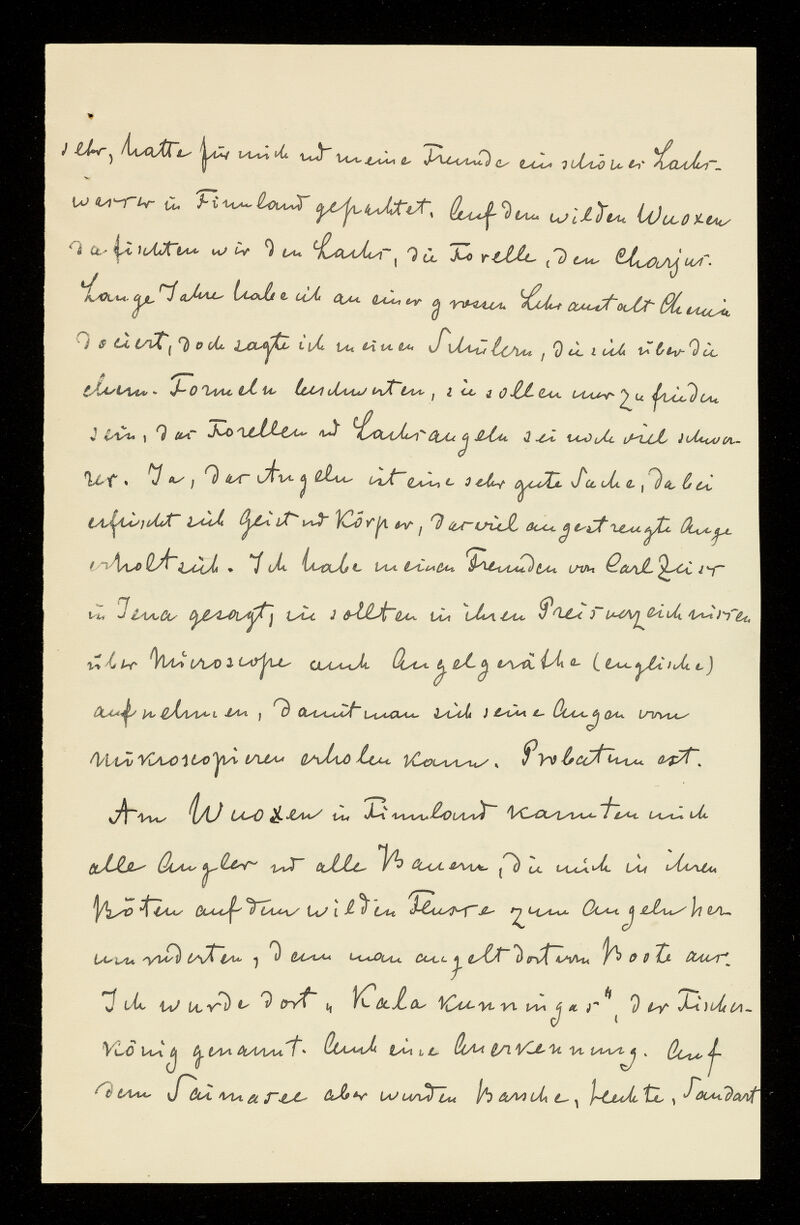 sehr, hatte für mich und meine Freunde ein schönes Lachs-
wasser in Finnland gepachtet. Auf dem wilden Wuoxen
da fischten wir den Lachs, die Forelle, den Charjus.
Lange Jahre habe ich an einer grossen Lehranstalt Chemie
dociert, doch sagte ich meinen Schülern, die sich über die
chem. Formeln beschwerten, sie sollen nur zufrieden
sein, das Forellen und Lachsangeln sei noch viel schwe-
rer. Ja, das Angeln ist eine sehr gute Sache, dabei
erfrischt sich Geist und Körper, das viel angestrengte Auge
erholt sich. Ich habe meinen Freunden von Carl Zeiss
in Jena gesagt, sie sollten in ihren Preisverzeichnissen
über Microscope auch Angelgeräthe (englische)
aufnehmen, damit man sich seine Augen vom
Mikroscopieren erholen kann. Probatum est.
Am Wuoxen in Finnland kannten mich
alle Angler und alle Bauern, die mich in ihren
Böten auf dem wilden Flusse zum Angeln her-
umruderten, denn man angelt dort vom Boote aus.
Ich wurde dort „Kala kunningas", der Fischer-
könig genannt. Auch eine Anerkennung. Auf
dem Saimasee aber wurden Barsche, Hechte, Sandart